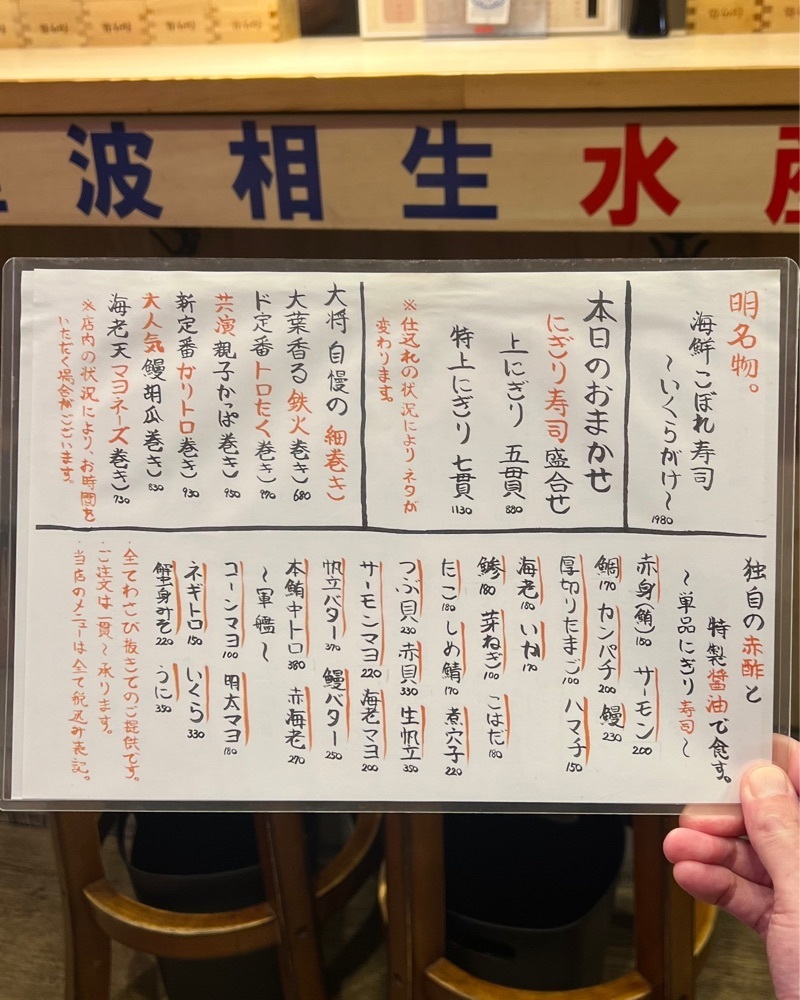 波相生水産
明名物。
海鮮こぼれ寿司
〜いくらがけ〜 1980
本日のおまかせ
にぎり寿司盛合せ
上にぎり 五貫 880
特上にぎり 七貫 1130
※仕込れの状況によりネタが
変わります。
大将自慢の細巻き)
大葉香る鉄火巻き) 680
ド定番トロたく巻き) 970
共演親子かっぱ巻き) 950
新定番ガリトロ巻き) 930
大人気鰻胡瓜巻き) 830
海老天マヨネーズ巻き) 730
※店内の状況により、お時間を
いただく場合がございます。
独自の赤酢と
特製醤油で食す。
〜単品にぎり寿司〜
赤身(鮪) 150 サーモン 200
鯛 170 カンパチ 200 鰻 230
厚切りたまご 100 ハマチ 150
海老 180 いか 170
鯵 180 芽ねぎ 100 こはだ 180
たこ 180 しめ鯖 170 煮穴子 220
つぶ貝 230 赤貝 330 生帆立 350
サーモンマヨ 220 海老マヨ 200
帆立バター 370 鰻バター 250
本鮪中トロ 380 赤海老 270
〜軍艦〜
コーンマヨ 100 明太マヨ 180
ネギトロ 150 いくら 330
蟹身みそ 220 うに 350
全てわさび抜きでのご提供です。
ご注文は一貫〜承ります。
当店のメニューは全て税込み表記。